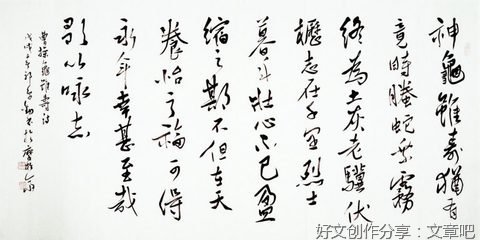 神龜雖壽猶有
竟時騰蛇乘霧
終為土灰老驥伏
櫪志在千里烈士
暮年壯心不已盈
縮之期不但在天
養怡之福可得
永年幸甚至哉
歌以咏志
曹操龜雖壽詩
戊戌年
好文创作分享：文章吧